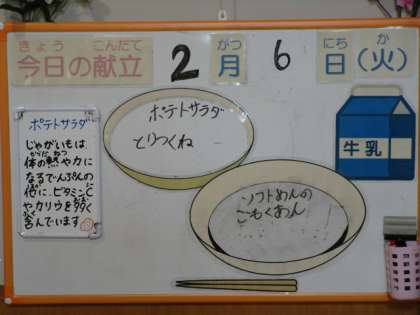 きょう こんだて
今日の献立
2
がつ
月
6
にち
日
か
(火)
ポテトサラダ
とりつくね
ポテトサラダ
じゃがいもは
からだ ねつ
体の熱や力に
なるでんぷんの
他に、ビタミンC
やカリウムを多く
含んでいます
牛乳
ソフトめんの
ごもくあん